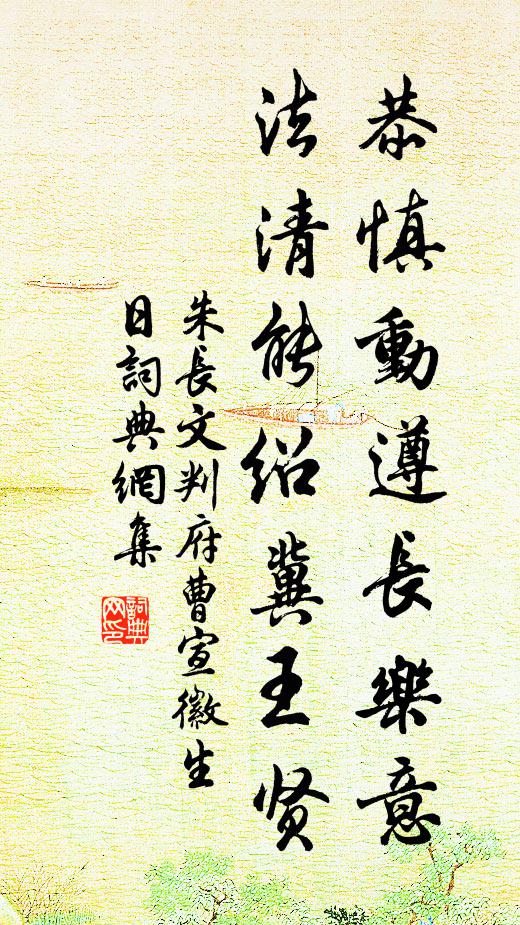 恭慎動遵長樂意
法清能紹冀王贤
朱長文判府曹宣徽生
日詞典網集
詞典网印